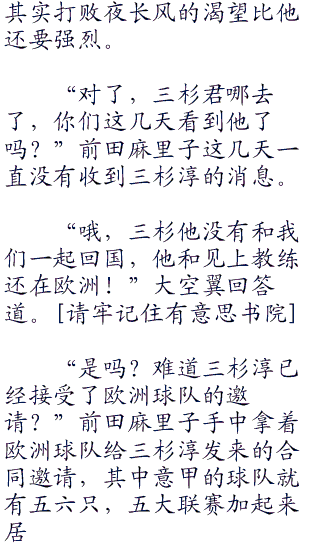 其实打败夜长风的渴望比他
还要强烈。
“对了，三杉君哪去
了，你们这几天看到他了
吗？”前田麻里子这几天一
直没有收到三杉淳的消息。
“哦，三杉他没有和我
们一起回国，他和见上教练
还在欧洲！”大空翼回答
道。[请牢记住有意思书院]
“是吗？难道三杉淳已
经接受了欧洲球队的邀
请？”前田麻里子手中拿着
欧洲球队给三杉淳发来的合
同邀请，其中意甲的球队就
有五六只，五大联赛加起来
居